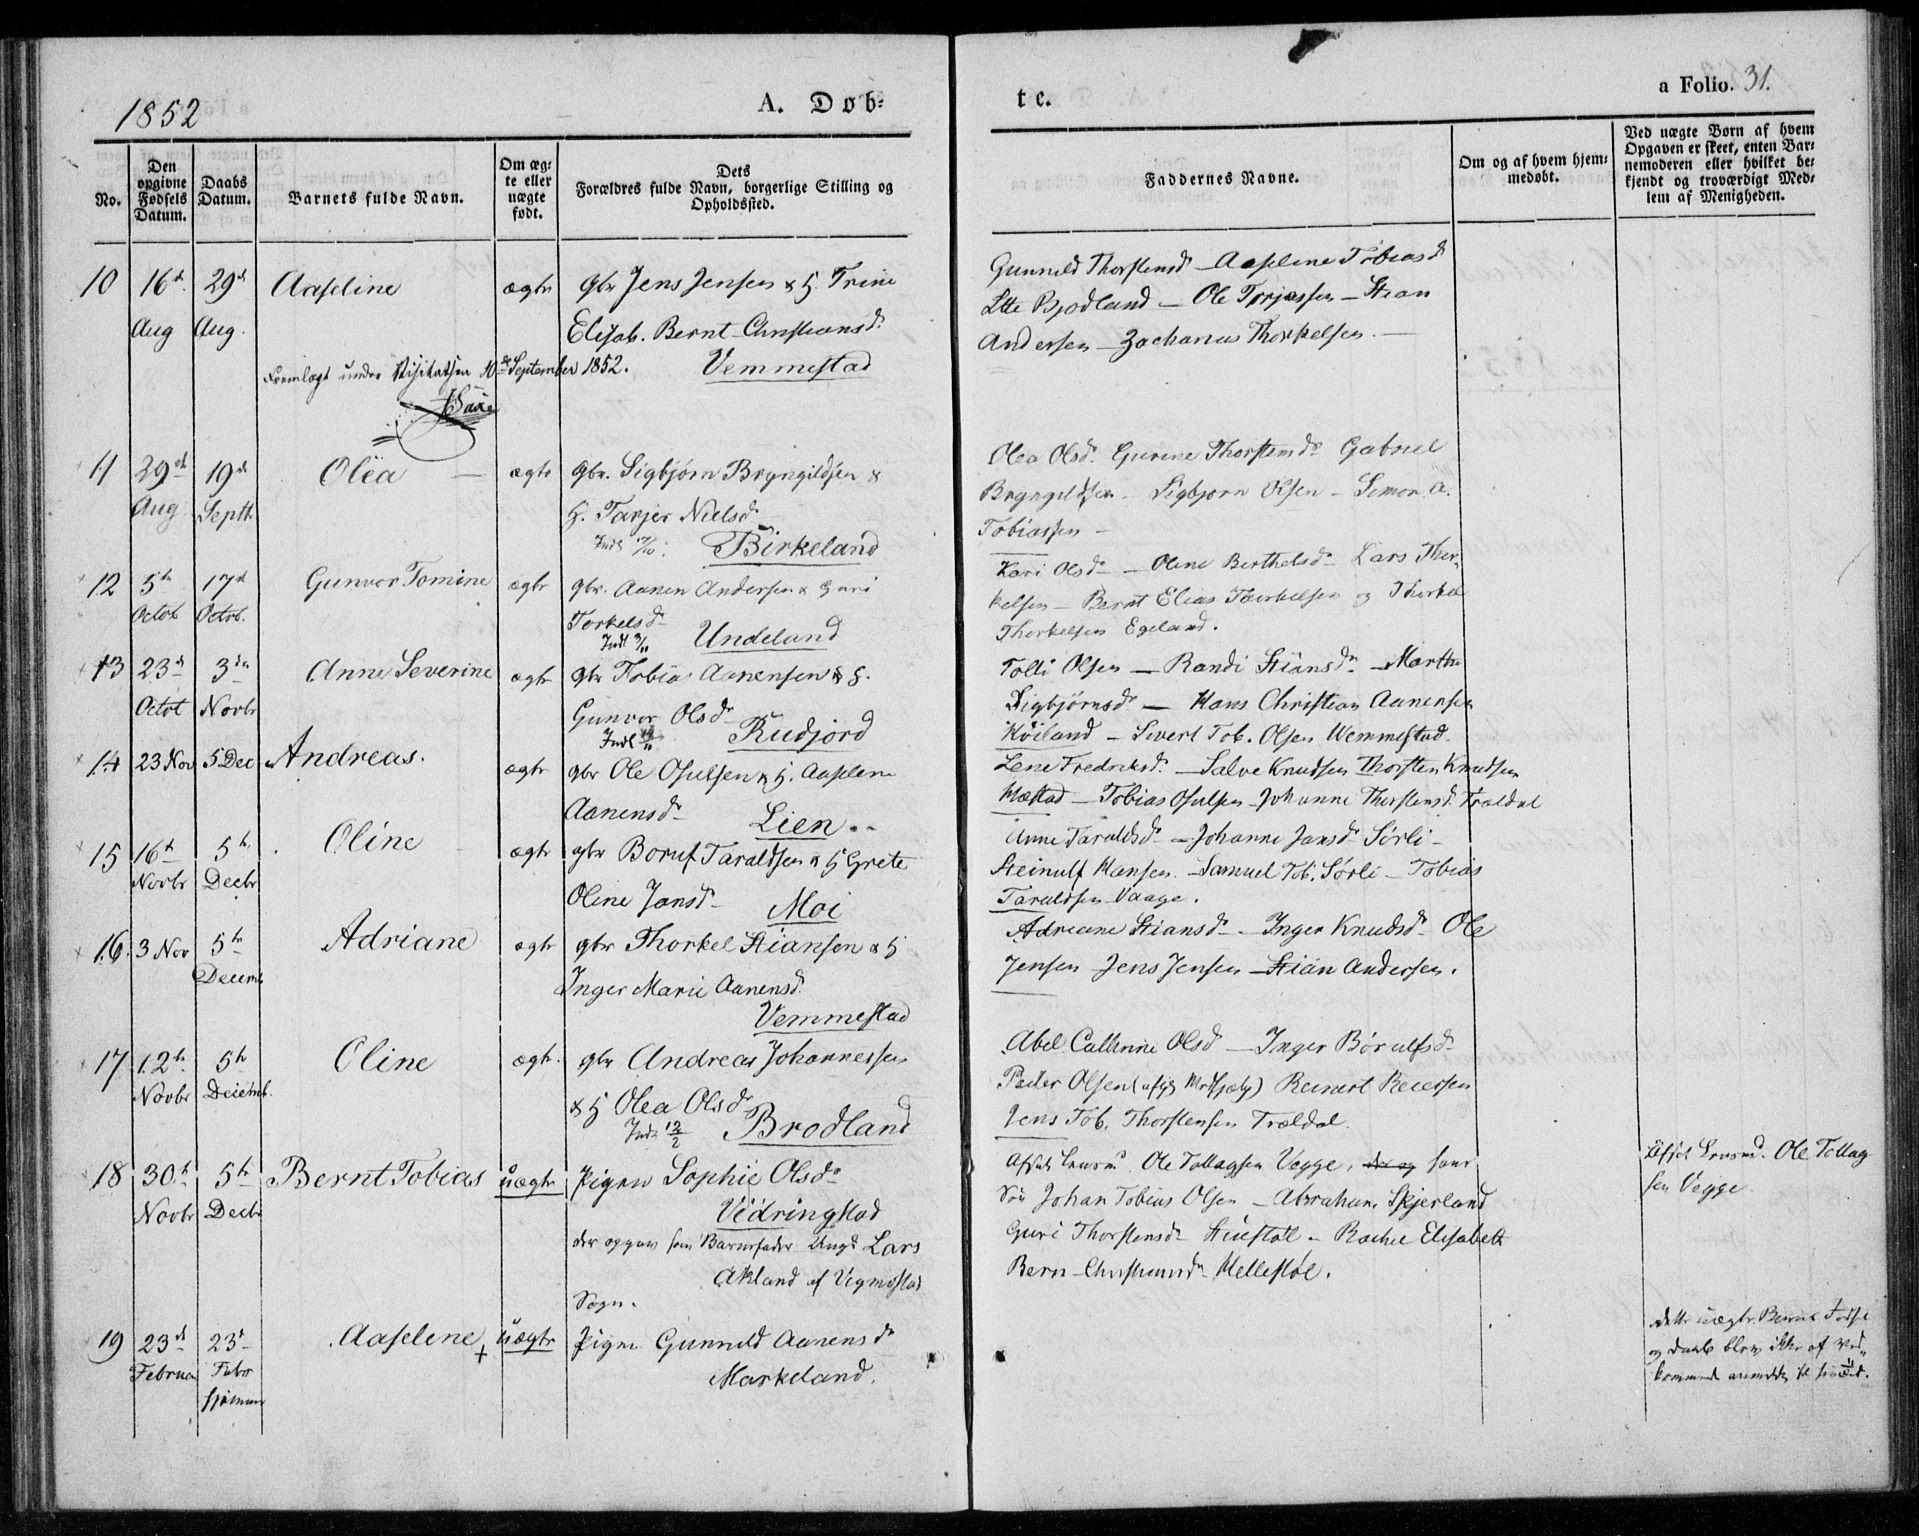 1852
A. Døb-
te.
a Folio. 31.
No.
Den opgivne Fødsels Datum.
Daabs Datum.
Barnets fulde Navn.
Om ægte eller uægte født.
Dets
Forældres fulde Navn, borgerlige Stilling og
Opholdssted.
Faddernes Navne.
Om og af hvem hjem-
medøbt.
Ved uægte Børn af hvem
Opgaven er skeet, enten Bar-
nemoderen eller hvilket be-
kjendt og troværdigt Med-
lem af Menigheden.
10 16de 29de Aaseline ægte gbr Jens Jensen & H. Trine
Aug Aug. Elisab. Bernt-Christiansd.
Fremlagt under Visitatsen 10de September 1852. Vemmestad
Gunnild Thorstensd - Aaselene Tobiasd
Bjodland - Ole Torjussen - Stian
Andersen - Zacharias Thorkelsen. -
11 29de 19de Olëa - ægte gbr. Sigbjørn Bryngildsen &
Aug Septb. H. Tarjer Nielsd
Indl Birkeland
Olea Olsd. Gurine Thorstensd Gabriel
Bryngildsen - Sigbjørn Olsen - Simon A.
Tobiassen -
12 5te 17de Gunvor Tomine ægte gbr. Aanen Andersen & Guri
Octob Octob. Torkelsd
Indl Undeland
Kari Olsd - Olene Berthelsd - Lars Thor-
kelsen - Bernt Elias Thorkelsen og Thorkel
Thorkelsen Egeland.
13 23de 3die Anne Severine ægte gbr Tobias Aanensen & H.
Octob Novbr Gunvor Olsd
Indl Rudjord
Tolli Olsen - Randi Stiansd - Marthe
Sigbjørnsd - Hans Christian Aanensen
Høiland - Sivert Tob. Olsen Wemmestad.
14 23 Nov 5 Dec Andreas. ægte gbr Ole Osulsen & H. Aaselene
Aanensd Lien.
Lene Fredriksd. - Salve Knudsen Thorsten Knudsen
Mæstad - Tobias Osulsen - Johanne Thorstensd. Trældal
15 16de 5te Oline ægte gbr Boruf Taraldsen & H Grete
Novbr Decbr Oline Jansd Moi
Anne Taraldsd - Johanne Jansd Sørli -
Steinulf Hansen - Samuel Tob. Sørli - Tobias
Taraldsen Vaage.
16. 3 Nov 5te Adriane ægte gbr Thorkel Stiansen & H
Decemb Inger Marie Aanensd.
Vemmestad
Adreane Stiansd - Inger Knudsd Ole
Jensen Jens Jensen - Stian Andersen.
17 12te 5te Oline ægte. gbr Andreas Johannessen
Novbr Decemb. & H Olea Olsd
Indl 12/2 Brodland
Abel Cathrine Olsd - Inger Børulfsd
Peder Olsen Reinert Reiersen
Jens Tob. Thorstensen Trældal.
18 30te 5te Bernt Tobias uægte Pigen Sophie Olsd
Novbr Decbr Vidringstad
der opgav som Barnefader Ungk Lars
Akland af Vigmostad
Sogn.
Ole Tollagsen Vegge, der og hans
Søn Johan Tobias Olsen - Abraham Skjerland
Guri Thorstensd - Rachel Elisabeth
Bern-Christiansd Hellestøl.
Ole Tollag
sen Vegge
19 23de 23de Aaselene uægte Pigen Gunnild Aanensd
Februar Febr Markeland.
hjemme
dette uægte Barns Fødsel
og Daab blev ikke af Ved-
kommende anmeldt til sin Tid.